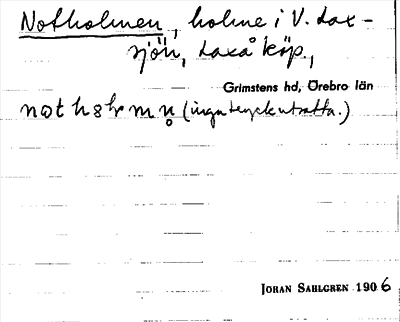 Notholmen, holme i V. Lax-
sjön, Laxå köp.,
Grimstens hd, Örebro län
(inga tryck utsatta.)
JOHAN SAHLGREN 1906